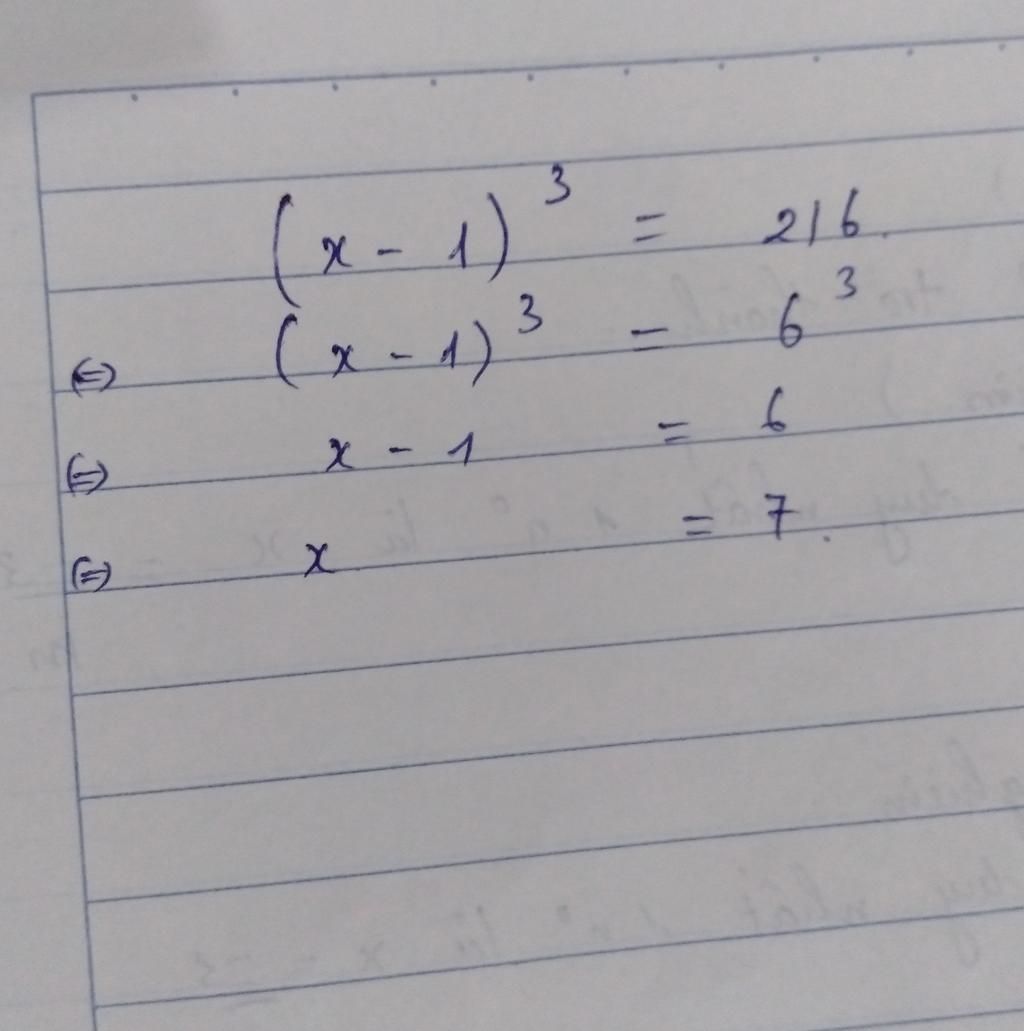 (x - 1)³ = 216.
(=) (x - 1)³ = 6³
(=) x - 1 = 6
(=) x = 7.